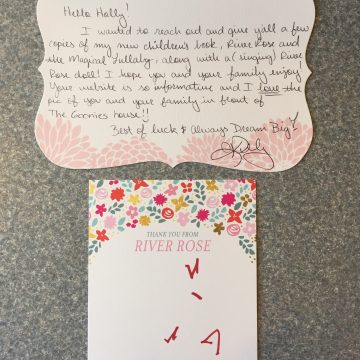 Hello Holly!
I wanted to reach out and give y'all a few
copies of my new children's book, River Rose and
the Magical Lullaby, along with a (singing) River
Rose doll! I hope you and your family enjoy.
Your website is so informative and I love the
pic of you and your family in front of
The Goonies house!!
Best of luck & Always Dream Big!
THANK YOU FROM
RIVER ROSE